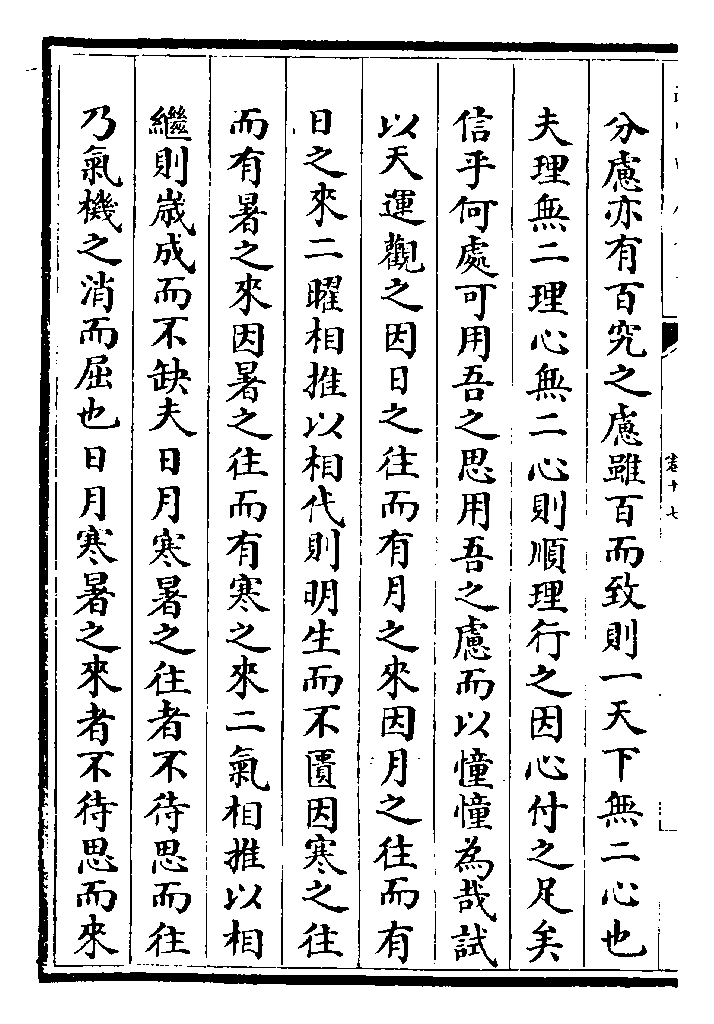 卷十七
分慮亦有百究之慮雖百而致則一天下無二心也
夫理無二理心無二心則順理行之因心付之足矣
信乎何處可用吾之思用吾之慮而以憧憧為哉試
以天運觀之因日之往而有月之來因月之往而有
日之來二曜相推以相代則明生而不匱因寒之往
而有暑之來因暑之往而有寒之來二氣相推以相
繼則嵗成而不缺夫日月寒暑之往者不待思而往
乃氣機之消而屈也日月寒暑之來者不待思而來